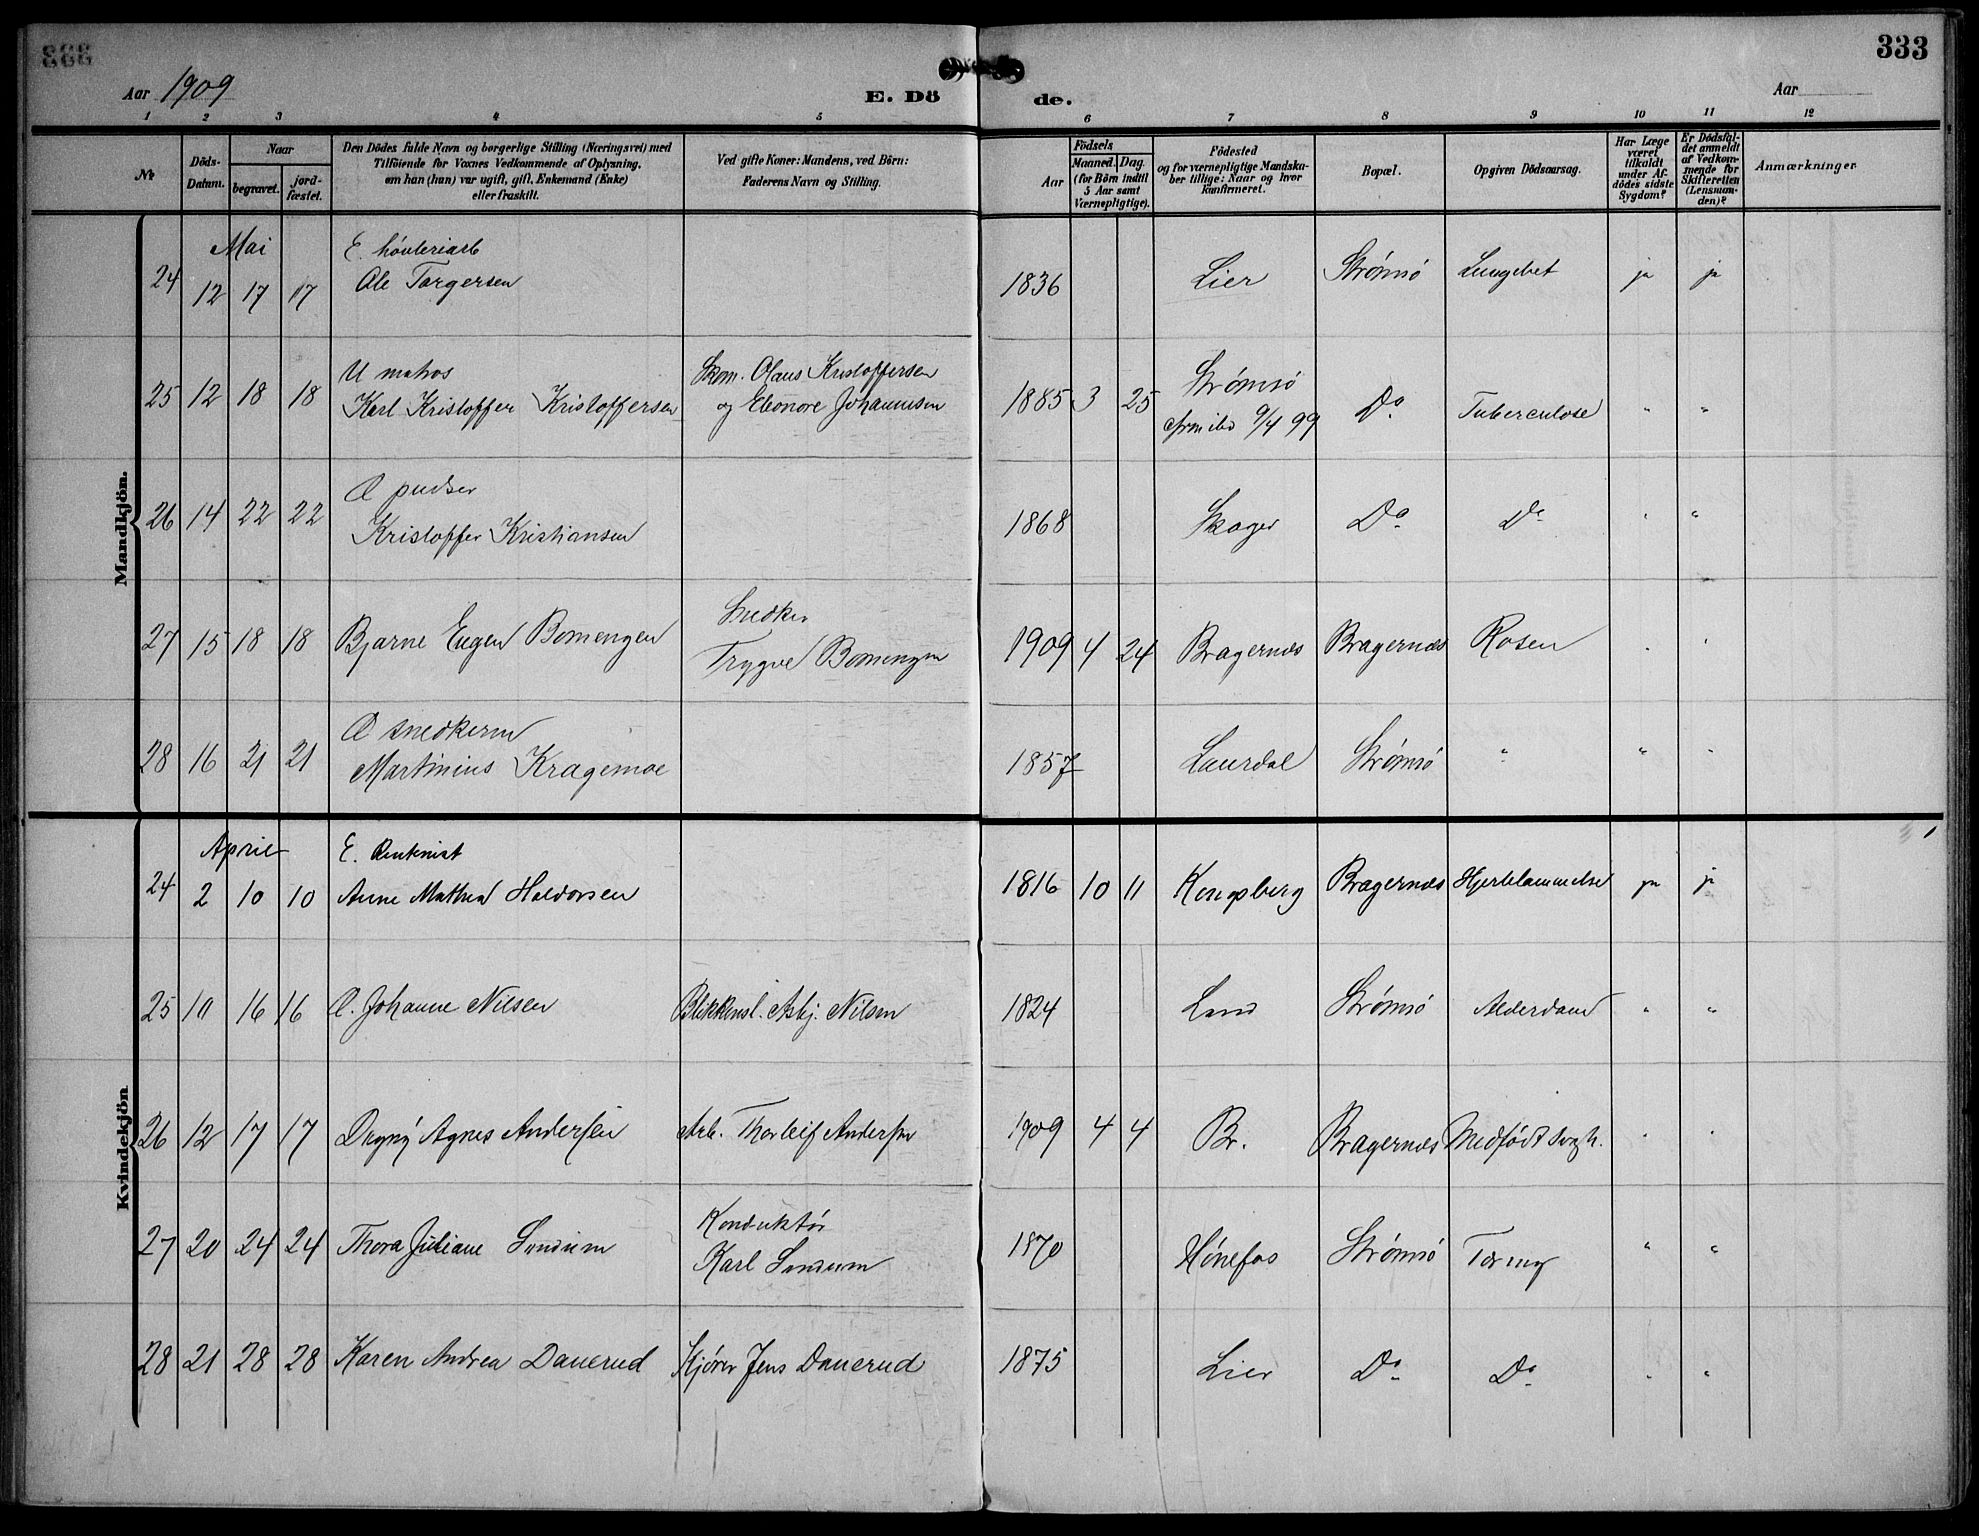 333
Aar 1909
E. Dö de.
Aar
1 2 3 4 5 6 7 8 9 10 11 12
No
Döds-Datum.
Naar begravet. jordfæstet.
Den Dödes fulde Navn og borgerlige Stilling (Næringsvei) med Tilföiende for Voxnes Vedkommende af Oplysning, om han (hun) var ugift, gift, Enkemand (Enke) eller fraskilt.
Ved gifte Koner: Mandens, ved Börn: Faderens Navn og Stilling.
Födsels Aar Maaned. Dag. (for Börn indtil 5 Aar samt Værnepligtige).
Födested og for værnepligtige Mandskaber tillige: Naar og hvor konfirmeret.
Bopæl.
Opgiven Dödsaarsag.
Har Læge været tilkaldt under Afdödes sidste Sygdom?
Er Dödsfaldet anmeldt af Vedkommende for Skifteretten (Lensmanden)?
Anmærkninger
Mandkjön.
Mai E. høvleriarb
24 12 17 17 Ole Torgersen 1836 Lier Strømsø Lungebet ja ja
U matros Skom. Olaus Kristoffersen Strømsø
25 12 18 18 Karl Kristoffer Kristoffersen og Eleonore Johannesen 1885 3 25 9/4 99 Do Tuberculose " "
G pudser
26 14 22 22 Kristoffer Kristiansen 1868 Skoger Do Do " "
Snedker
27 15 18 18 Bjarne Eugen Bomengen Trygve Bomengen 1909 4 24 Bragernæs Bragernæs Rosen " "
G snedkerm
28 16 21 21 Martinius Kragemoe 1857 Laurdal Strømsø " " "
Kvindekjön
April E. Rentenist
24 2 10 10 Anne Mathea Haldorsen 1816 10 11 Kongsberg Bragernæs Hjertelammelse ja ja
25 10 16 16 G. Johanne Nilsen Blikkensl. Asbj. Nilsen 1824 Land Strømsø Alderdom " "
26 12 17 17 Dagny Agnes Andersen Arb. Thorleif Andersen 1909 4 4 Br. Bragernæs Medfødt svagh. " "
Konduktør
27 20 24 24 Thora Juliane Karl 1870 Hønefos Strømsø Tæring " "
28 21 28 28 Karen Andrea Danerud Kjører Jens Danerud 1875 Lier Do Do " "